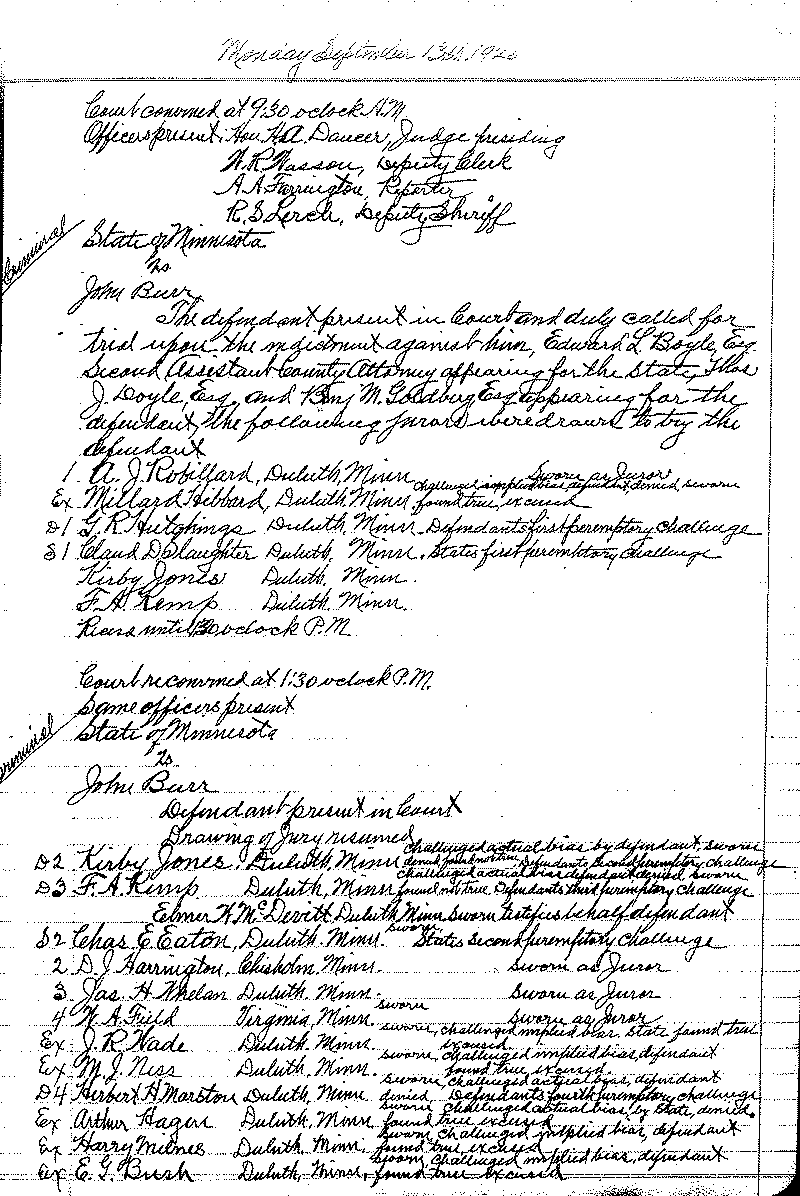 Monday September 13th 1920
Court convened at 9:30 oclock A.M.
Officers present, Hon. H.A. Dancer, Judge presiding
W.R. Wasson, Deputy Clerk
A.A. Farrington, Reporter
R.G. Lerch, Deputy Sheriff
Criminal
State of Minnesota
vs
John Burr
The defendant present in Court and duly called for
trial upon the indictment against him, Edward L. Boyle, Esq
Second Assistant County Attorney appearing for the State, Thos
J. Doyle, Esq. and Benj M. Goldberg Esq appearing for the
defendant, the following jurors were drawn to try the
defendant
1 A. J. Robillard, Duluth, Minn Sworn as Juror
Ex Millard Hibbard, Duluth Minn challenged implied bias, defendant, denied, sworn found true, excused
D1 G. R. Hutchings Duluth Minn Defendants first peremptory challenge
S1 Claud D Slaughter Duluth, Minn. States first peremptory challenge
Kirby Jones Duluth, Minn.
F.A. Kemp Duluth Minn.
Recess until 1:30 oclock P.M
Court reconvened at 1:30 oclock P.M.
Same officers present
Criminal
State of Minnesota
vs
John Burr
Defendant present in Court
Drawing of Jury resumed
D2 Kirby Jones Duluth, Minn challenged actual bias by defendant, sworn denied found not true. Defendants second peremptory challenge
D3 F.A. Kemp Duluth, Minn challenged actual bias defendant denied, sworn found not true. Defendants third peremptory challenge
Elmer W. McDevitt Duluth Minn Sworn testifies behalf defendant
S2 Chas E. Eaton, Duluth, Minn. sworn States second peremptory challenge
2 D. J. Harrington, Chisholm Minn. Sworn as Juror
3 Jas. H. Whelan Duluth, Minn. Sworn as Juror
4 W. A. Field Virginia, Minn. sworn Sworn as Juror
Ex J. R. Wade Duluth, Minn. sworn, challenged implied bias, State found true excused
Ex M. J. Ness Duluth, Minn. sworn, challenged implied bias, defendant found true, excused
D4 Herbert H. Marston Duluth, Minn sworn, challenged actual bias, defendant denied, Defendants fourth peremptory challenge
Ex Arthur Hagen Duluth, Minn sworn challenged actual bias, by State, denied, found true excused
Ex Harry Milnes Duluth, Minn, sworn, challenged implied bias, defendant found true excused
Ex E. G. Bush Duluth, Minn, sworn challenged implied bias, defendant found true excused